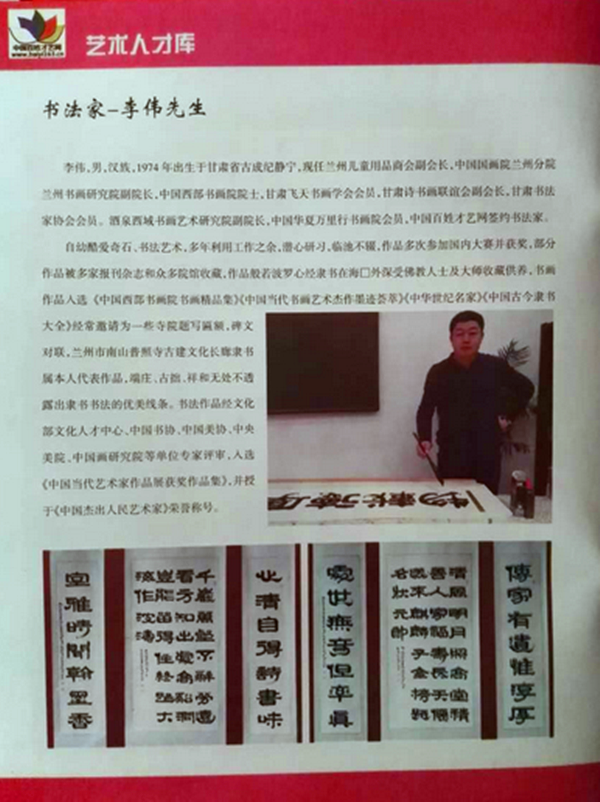 中国百姓才艺网
艺术人才库
书法家-李伟先生
李伟，男，汉族，1974年出生于甘肃省古成纪静宁，现任兰州儿童用品商会副会长，中国国画院兰州分院
兰州书画研究院副院长，中国西部书画院院士，甘肃飞天书画学会会员，甘肃诗书画联谊会副会长，甘肃书法
家协会会员。酒泉西域书画艺术研究院副院长，中国华夏万里行书画院会员，中国百姓才艺网签约书法家。
自幼酷爱奇石、书法艺术，多年利用工作之余，潜心研习，临池不辍，作品多次参加国内大赛并获奖，部分
作品被多家报刊杂志和众多院馆收藏，作品般若波罗心经隶书在海囗外深受佛教人士及大师收藏供养，书画
作品入选《中国西部书画院书画精品集》《中国当代书画艺术杰作墨迹荟萃》《中华世纪名家》《中国古今隶书
大全》经常邀请为一些寺院题写匾额，碑文
对联，兰州市南山普照寺古建文化长廊隶书
属本人代表作品，端庄、古拙、祥和无处不透
露出隶书书法的优美线条。书法作品经文化
部文化人才中心、中国书协、中国美协、中央
美院、中国画研究院等单位专家评审，入选
《中国当代艺术家作品展获奖作品集》，并授
于《中国杰出人民艺术家》荣誉称号。
傳家有道惟淳厚
清風明月照高堂積
善人家福壽長天賜
麒麟子金榜題
名狀元帥
處世無奇但率真
心清自得詩書味
千巖萬壑不辭勞遠
看方知出處高溪澗
豈能留得住終歸大
海作波濤
室雅時聞翰墨香